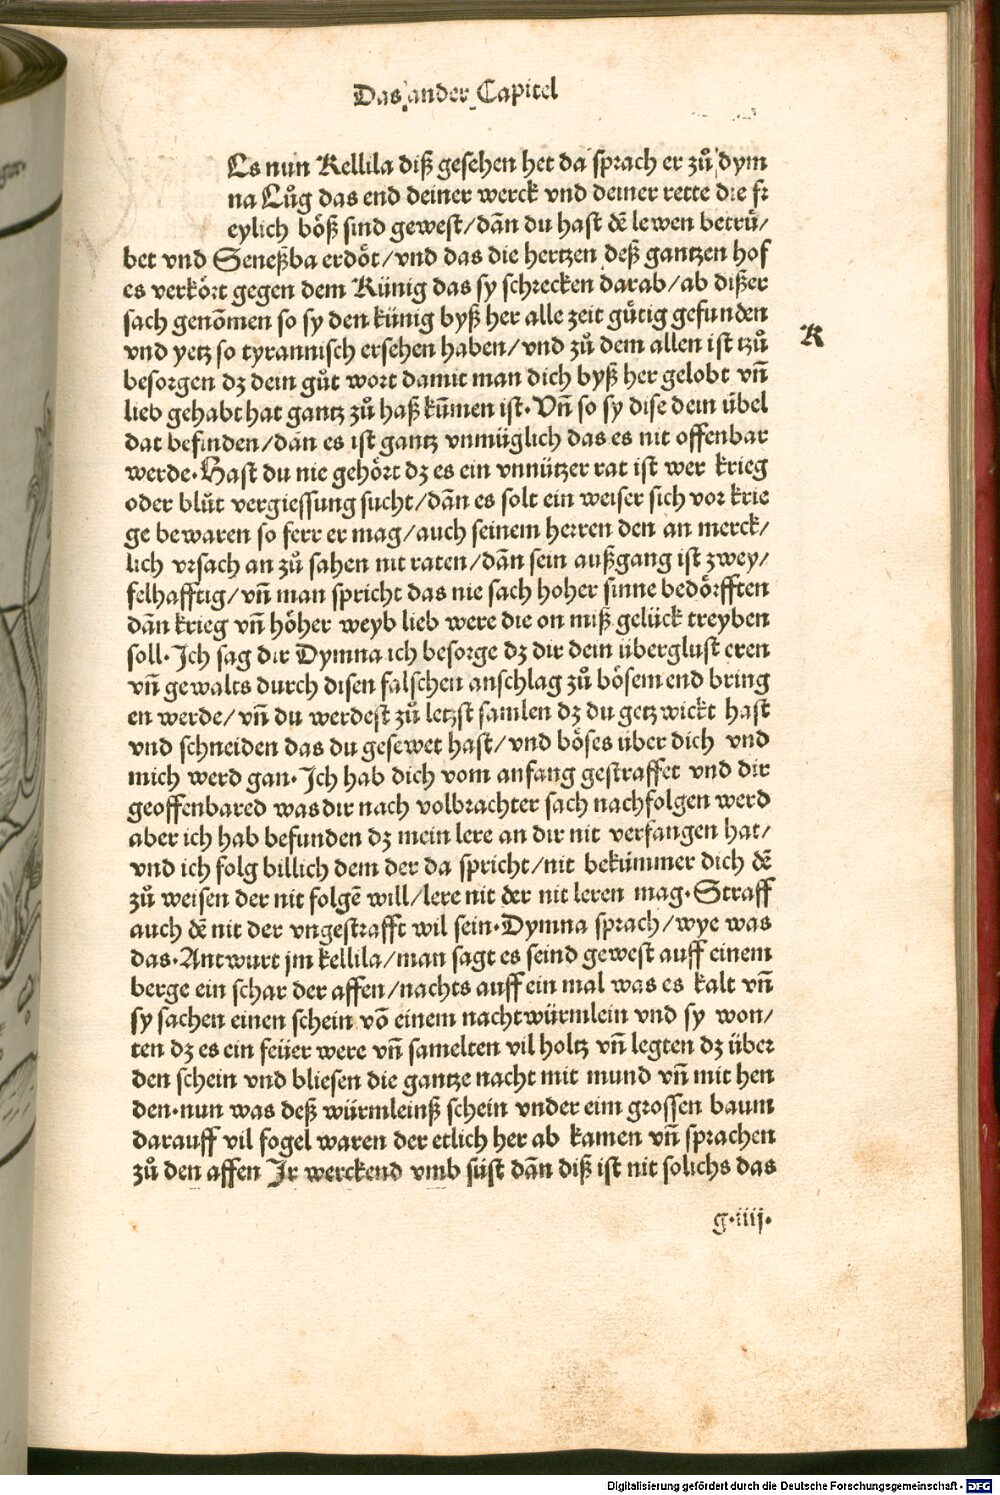 Das ander Capitel
Ls nun Kellila diß gesehen het da sprach er zů dym
na Lůg das end deiner werck vnd deiner rette die fr
eylich böß sind gewest/dañ du hast dē lewen betrü/
bet vnd Seneßba erdöt/vnd das die hertzen deß gantzen hof
es verkört gegen dem Künig das sy schrecken darab/ab dißer
sach genōmen so sy den künig byß her alle zeit gütig gefunden
vnd yetz so tyrannisch ersehen haben/vnd zů dem allen ist tzů
K
besorgen dz dein gůt wort damit man dich byß her gelobt vñ
lieb gehabt hat gantz zů haß kūmen ist·Vñ so sy dise dein übel
dat befinden/dañ es ist gantz vnmüglich das es nit offenbar
werde·Hast du nie gehört dz es ein vnnützer rat ist wer krieg
oder blůt vergiessung sucht/dañ es solt ein weiser sich vor krie
ge bewaren so ferr er mag/auch seinem herren den an merck/
lich vrsach an zů fahen nit raten/dañ sein außgang ist zwey/
felhafftig/vñ man spricht das nie sach hoher sinne bedörfften
dañ krieg vñ höher weyb lieb were die on miß gelück treyben
soll·Ich sag dir Dymna ich besorge dz dir dein überglust eren
vñ gewalts durch disen falschen anschlag zů bösem end bring
en werde/vñ du werdest zů letzst samlen dz du getzwickt hast
vnd schneiden das du gesewet hast/vnd böses über dich vnd
mich werd gan·Ich hab dich vom anfang gestraffet vnd dir
geoffenbared was dir nach volbrachter sach nachfolgen werd
aber ich hab befunden dz mein lere an dir nit verfangen hat/
vnd ich folg billich dem der da spricht/nit bekümmer dich dē
zů weisen der nit folgē will/lere nit der nit leren mag·Straff
auch dē nit der vngestrafft wil sein·Dymna sprach/wye was
das·Antwurt jm kellila/man sagt es seind gewest auff einem
berge ein schar der affen/nachts auff ein mal was es kalt vñ
sy sachen einen schein vō einem nachtwürmlein vnd sy won/
ten dz es ein feüer were vñ samelten vil holtz vñ legten dz über
den schein vnd bliesen die gantze nacht mit mund vñ mit hen
den·nun was deß würmleinß schein vnder eim grossen baum
darauff vil fogel waren der etlich her ab kamen vñ sprachen
zů den affen Ir werckend vmb süst dañ diß ist nit solichs das
g·iiij·
Digitalisierung gefördert durch die Deutsche Forschungsgemeinschaft - DFG